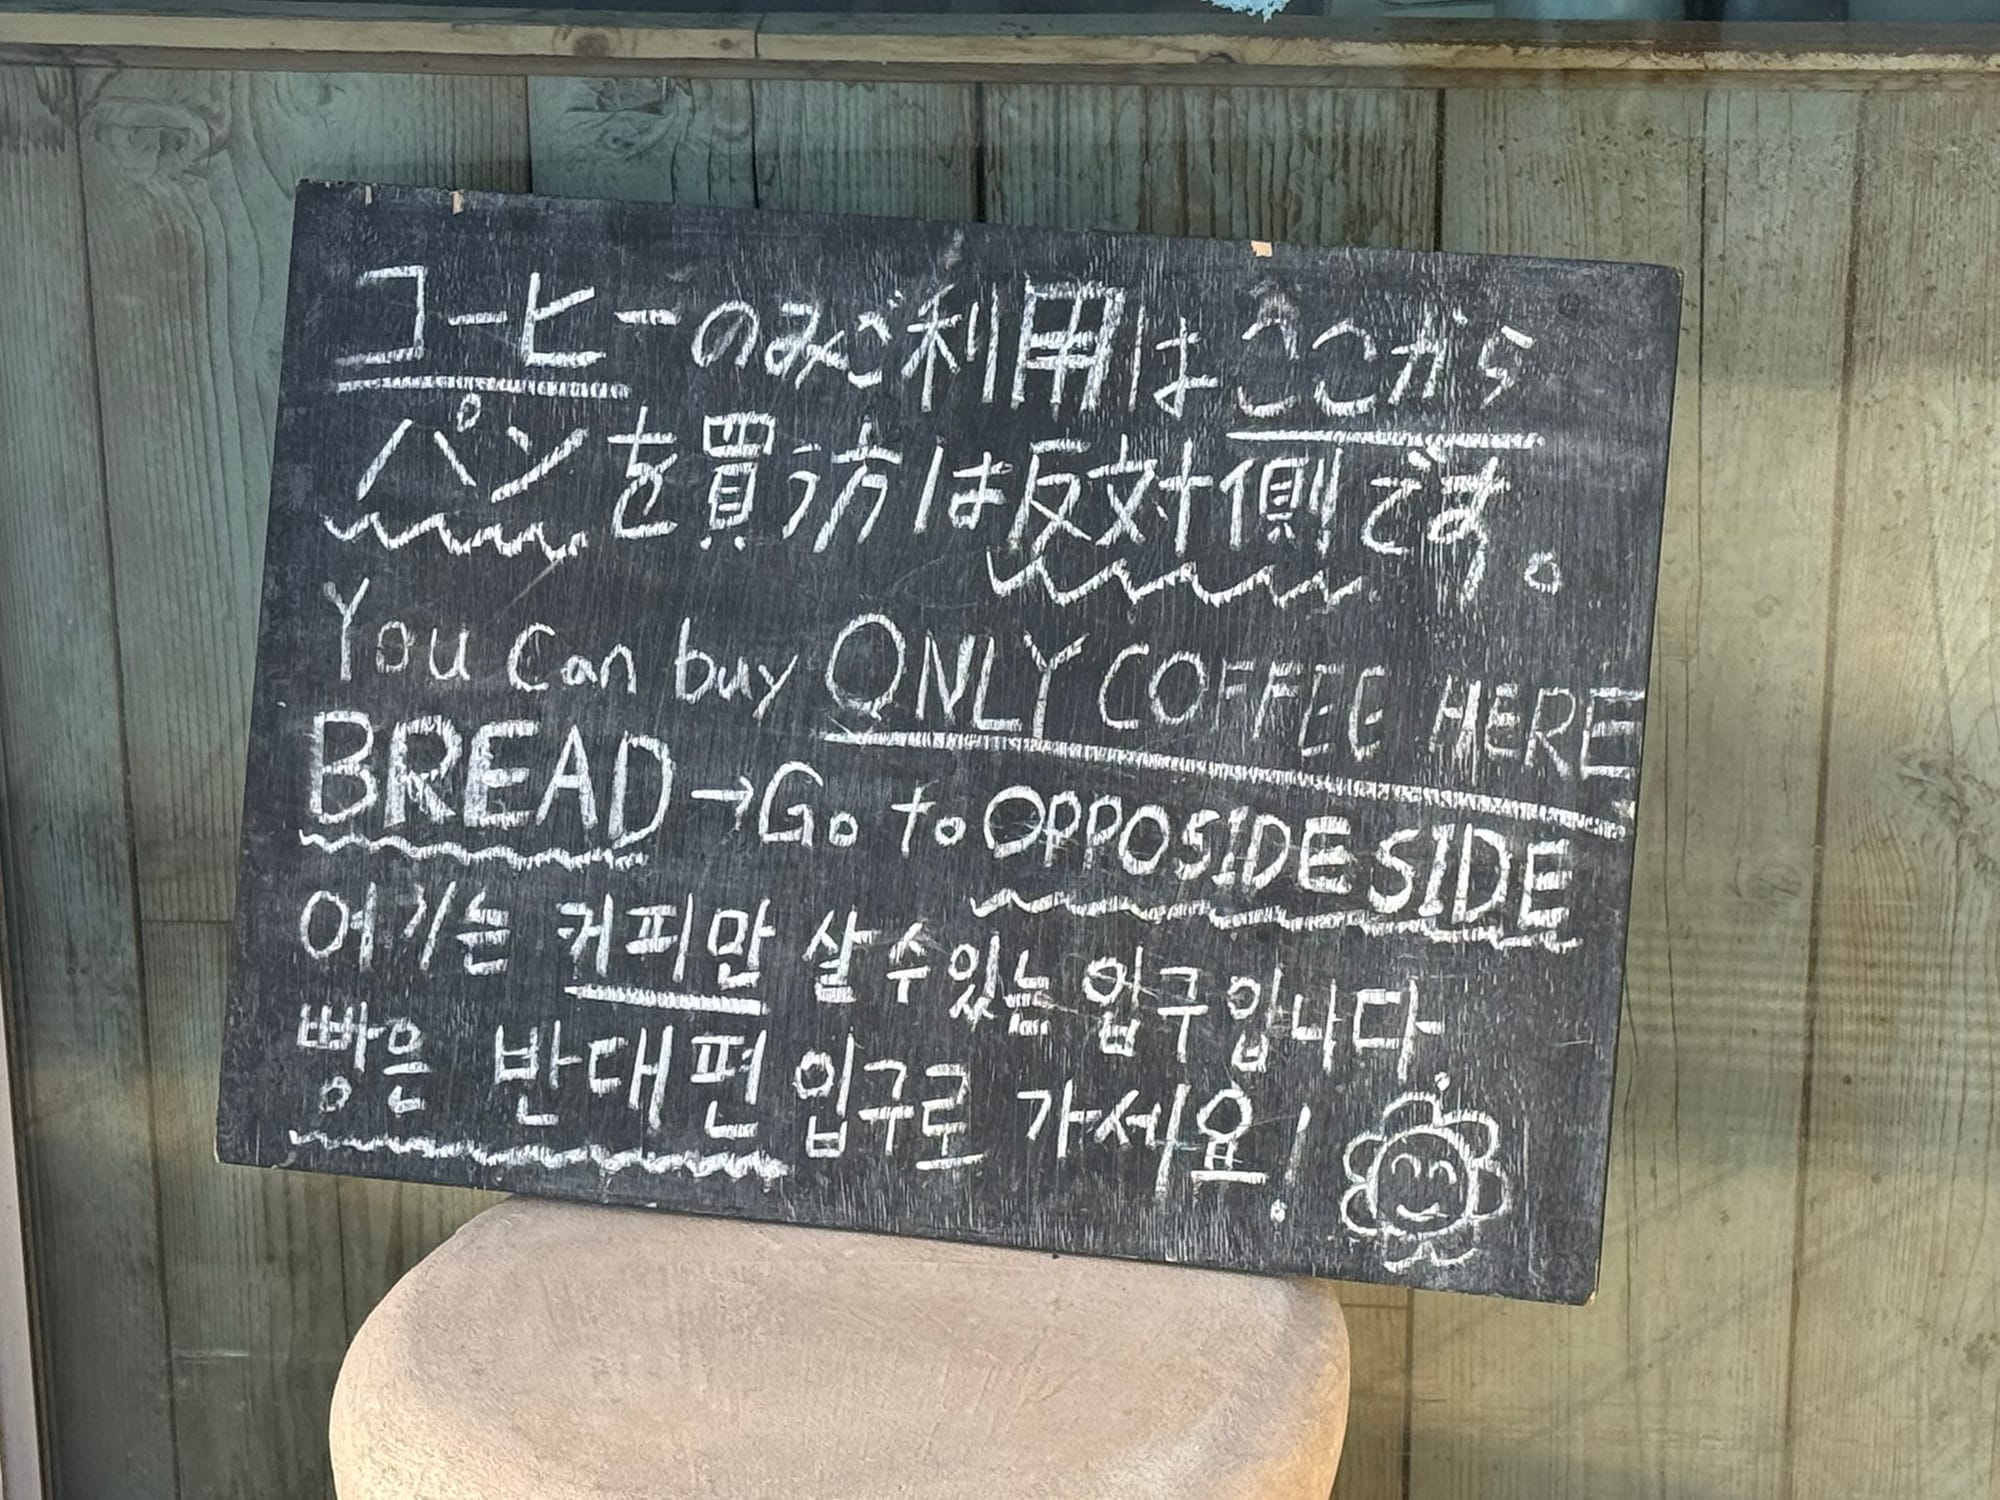 コーヒーのみご利用はここから
パンを買う方は反対側です。
You can buy ONLY COFFEE HERE
BREAD →Go to OPPOSIDE SIDE
여기는 커피만 살 수 있는 입구 입니다.
빵은 반대편 입구로 가세요!